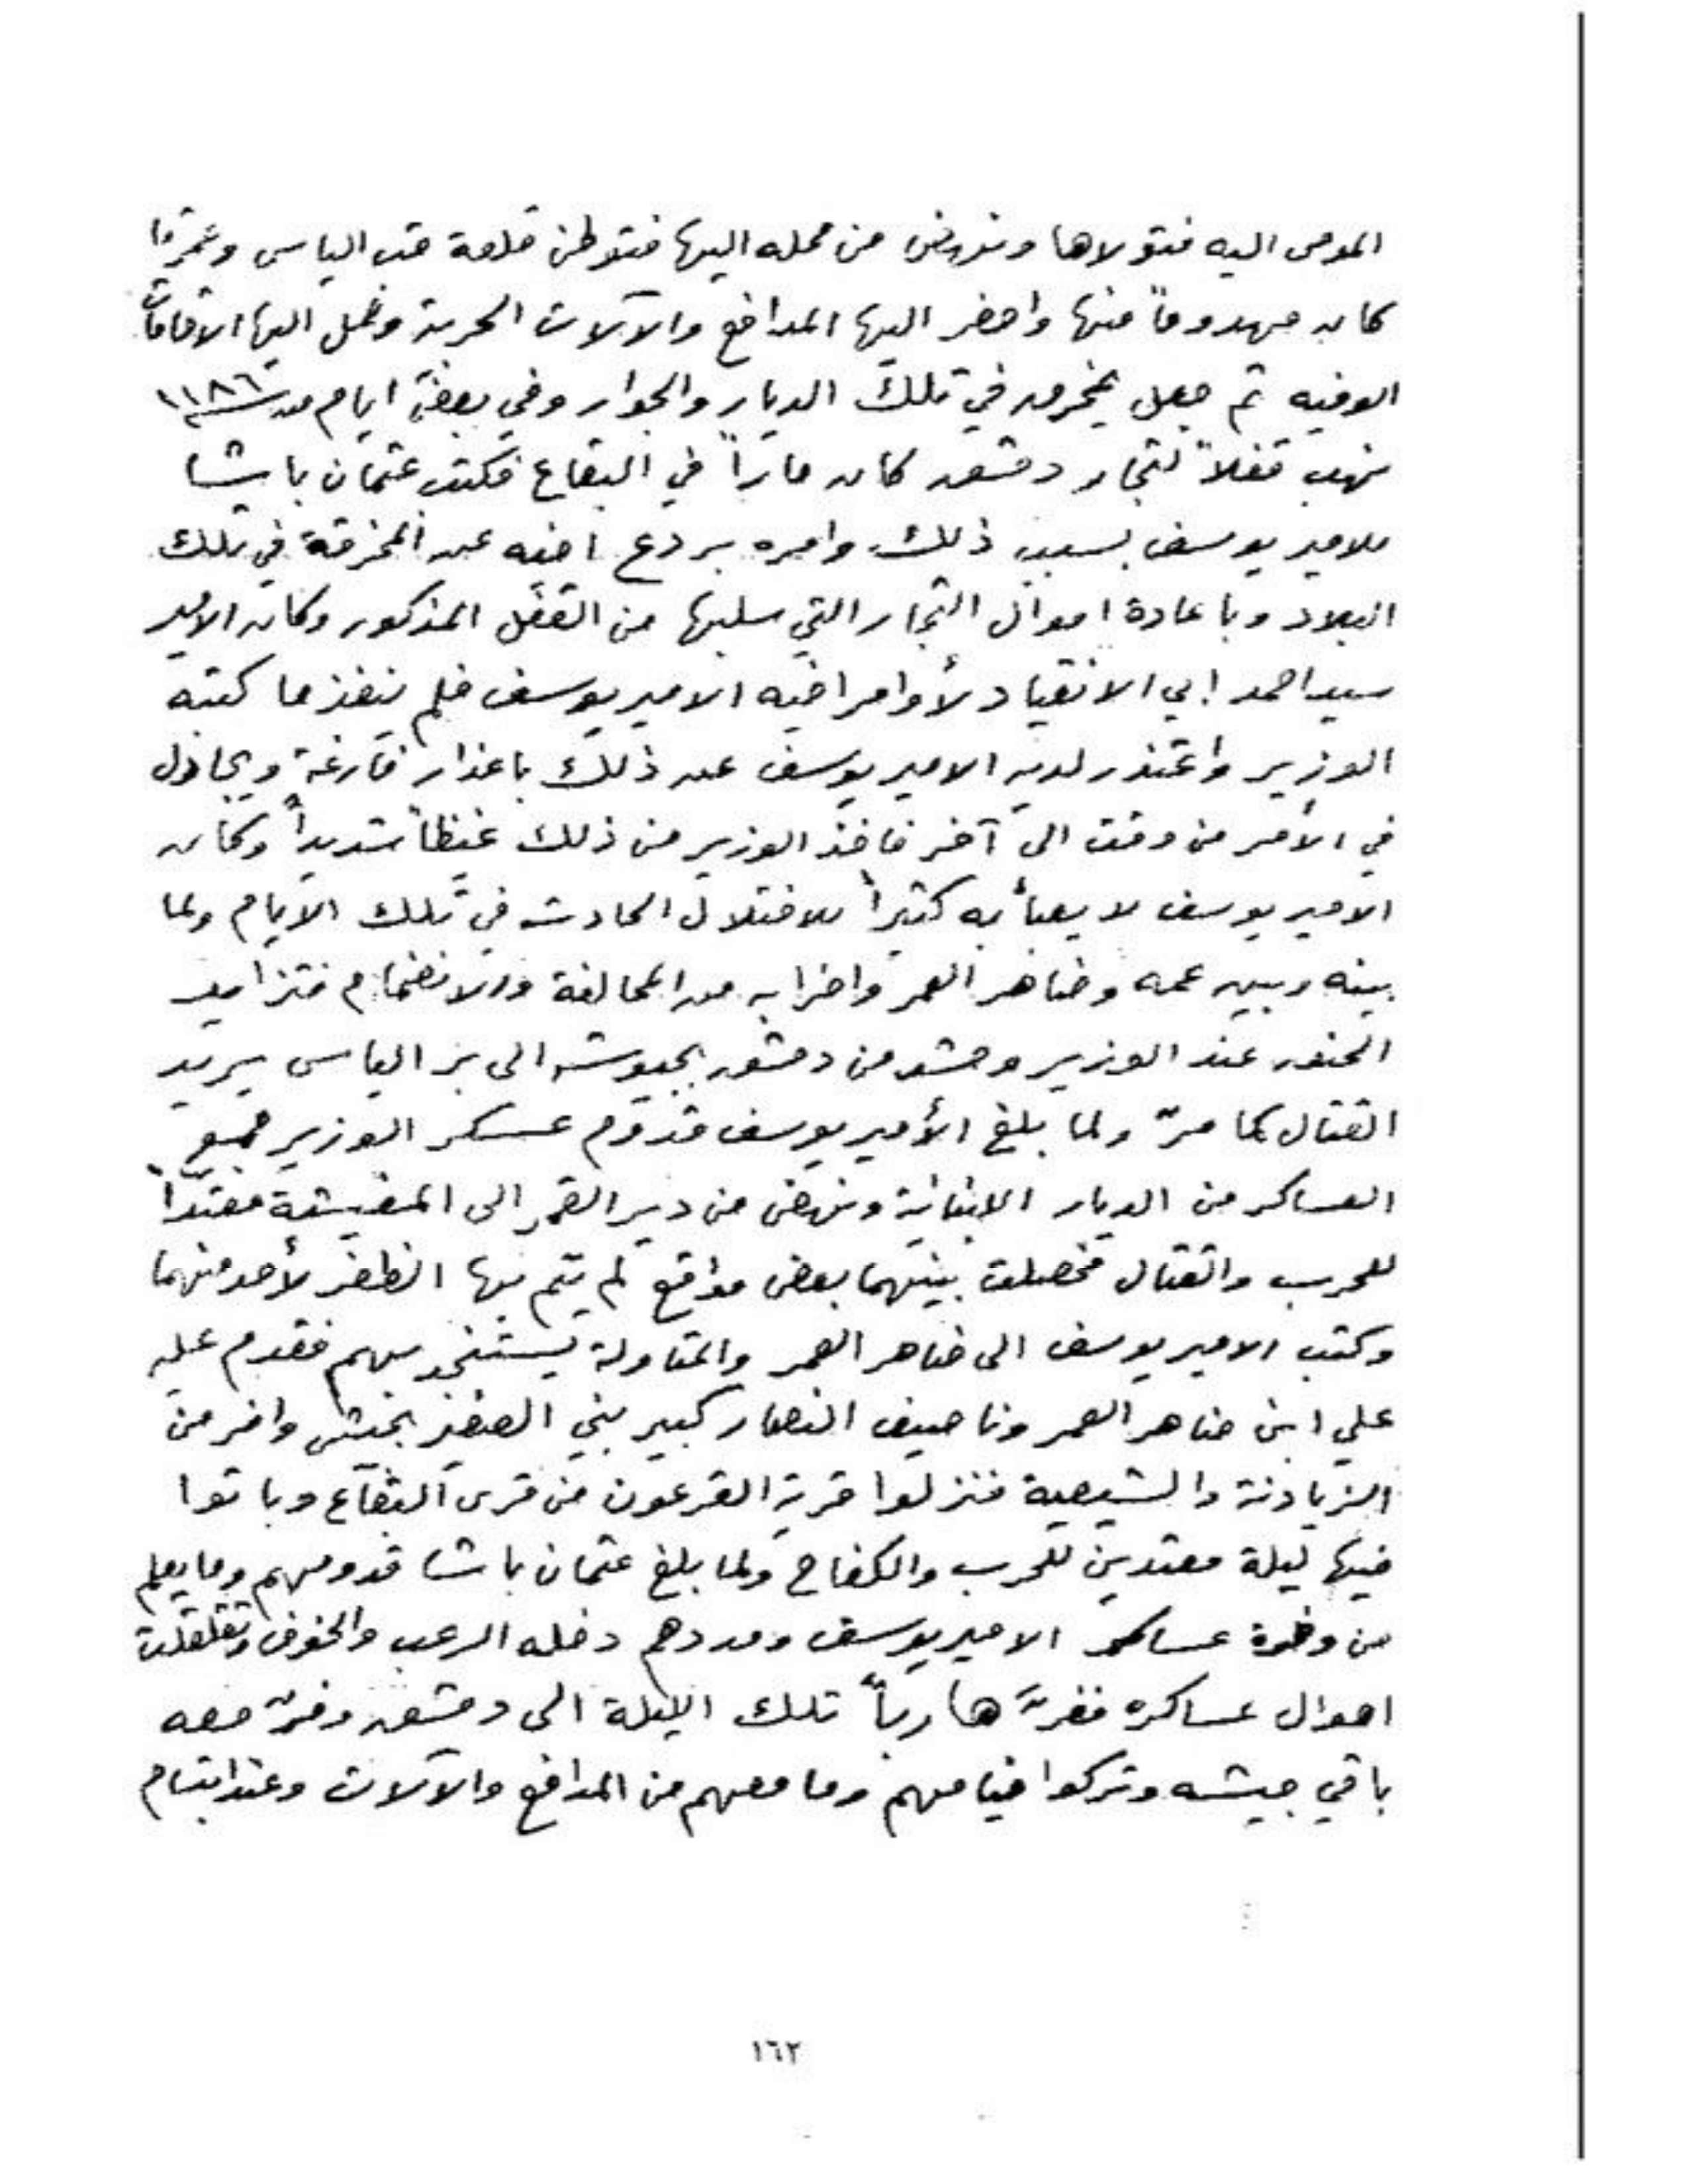 المومى اليه فتولاها ونهض من محله اليها فتوطن قلعة قب الياس وعمر ما
كان مهدوماً منها واحضر اليها المدافع والآلات الحربية ونقل اليها الاقامات
الوفيه ثم جعل يخرق في تلك الديار والجوار وفي بعض ايام من سنة ١١٨٦
نهب قفلاً لتجار دمشق كان ماراً في البقاع فكتب عثمان باشا
للامير يوسف بسبب ذلك وامره بردع اخيه عن المخرقة في تلك
البلاد وباعادة اموال التجار التي سلبها من القفل المذكور وكان الامير
سيد احمد ابي الانقياد لأوامر اخيه الامير يوسف فلم ينفذ ما كتبه
الوزير واعتذر لديه الامير يوسف عن ذلك باعذار فارغة ويحاول
في الأمر من وقت الى آخر فاخذ الوزير من ذلك غيظاً شديداً وكان
الامير يوسف لا يعبأ به كثيراً للاختلال الحادث في تلك الايام ولما
بينه وبين عمه وضاهر العمر واحزابه من المحالفة والانضمام فتزايد
الحنق عند الوزير وحشد من دمشق بجيوشه الى بر الياس يريد
القتال كما مرّ ولما بلغ الأمير يوسف قدوم عسكر الوزير جميع
العساكر من الديار اللبنانية ونهض من دير القمر الى المغيثة معتداً
للحرب والقتال فحصلت بينهما بعض مواقع لم يتم بها الظفر لأحد منهما
وكتب الامير يوسف الى ضاهر العمر والمتاولة يستنجد بهم فقدم عليه
علي ابن ضاهر العمر وناصيف النصار كبير بني الصغير بجيش وافر من
الزيادنة والشيعية فنزلوا قرية القرعون من قرى البقاع وباتوا
فيها ليلة معتدين للحرب والكفاح ولما بلغ عثمان باشا قدومهم وما يعلم
من وفرة عساكر الامير يوسف ومددهم دخله الرعب والخوف وتقلقلت
احوال عساكره ففرّ هارباً تلك الليلة الى دمشق وفرّ معه
باقي جيشه وتركوا خيامهم وما معهم من المدافع والآلات وعند ابتسام
١٦٢